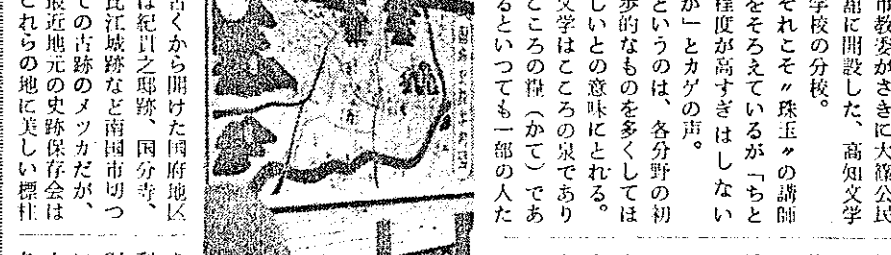 市教委がさきに大篠公民
館に開設した、高知文学
学校の分校。
それこそ〃珠玉〃の講師
をそろえているが「ちと
程度が高すぎはしない
か」とカゲの声。
というのは、各分野の初
歩的なものを多くしてほ
しいとの意味にとれる。
文学はこころの泉であり
こころの糧（かて）であ
るといつても一部の人た
古くから開けた国府地区
は紀貫之邸跡、国分寺、
比江城跡など南国市切つ
ての古跡のメッカだが、
最近地元の史跡保存会は
これらの地に美しい標柱